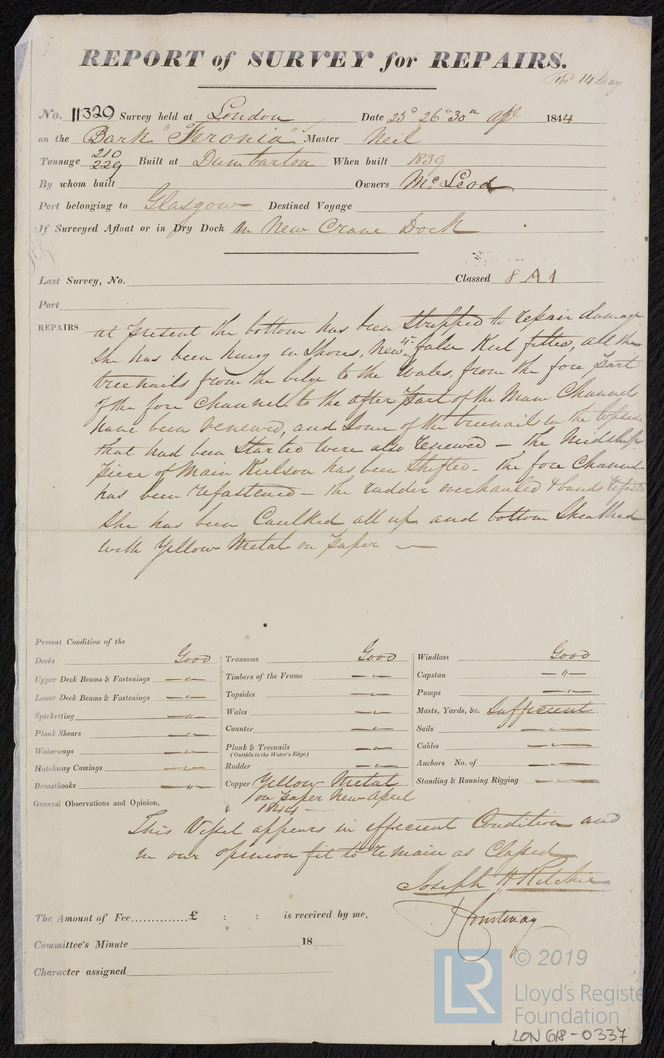 REPORT of SURVEY for REPAIRS.
14 May
No. 11329 Survey held at London Date 25° 26° 30th Apl 1844
on the Bark "Feronia" Master Neil
Tonnage 210 229 Built at Dumbarton When built 1839
By whom built Owners McLeod
Port belonging to Glasgow Destined Voyage
If Surveyed Afloat or in Dry Dock In New Crane Dock
Last Survey, No. Classed 8 A 1
Port
REPAIRS at present the bottom has been stripped to repair damage
She has been hung in Shores, New false Keel fitted, all the
treenails from the bilge to the Wales, from the fore part
of the fore Channel to the after part of the Main Channel
have been renewed, and some of the treenails in the topside
that had been started were also renewed – the Midships
piece of Main Keelson has been Shifted – the fore Channel
has been refastened – the rudder overhauled & bands
She has been Caulked all up and bottom Sheathed
with Yellow Metal on paper
Present Condition of the
Decks Good
Upper Deck Beams & Fastenings — " —
Lower Deck Beams & Fastenings — " —
Spirketting — " —
Plank Shears — " —
Waterways — " —
Hatchway Comings — " —
Breasthooks — " —
Transoms Good
Timbers of the Frame — " —
Topsides — " —
Wales — " —
Counter — " —
Plank & Treenails — " —
(Outside to the Water's Edge)
Rudder — " —
Copper Yellow Metal
on paper New April
1844
Windlass Good
Capstan — " —
Pumps — " —
Masts, Yards, &c. Sufficient
Sails — " —
Cables — " —
Anchors No. of — " —
Standing & Running Rigging — " —
General Observations and Opinion,
This Vessel appears in efficient Condition and
in our opinion fit to remain as Classed
Joseph H Ritchie
J Courtenay
The Amount of Fee..............£ : : is received by me,
Committee's Minute 18
Character assigned
LR © 2019
Lloyd's Registe
Foundation
LON 618-0337